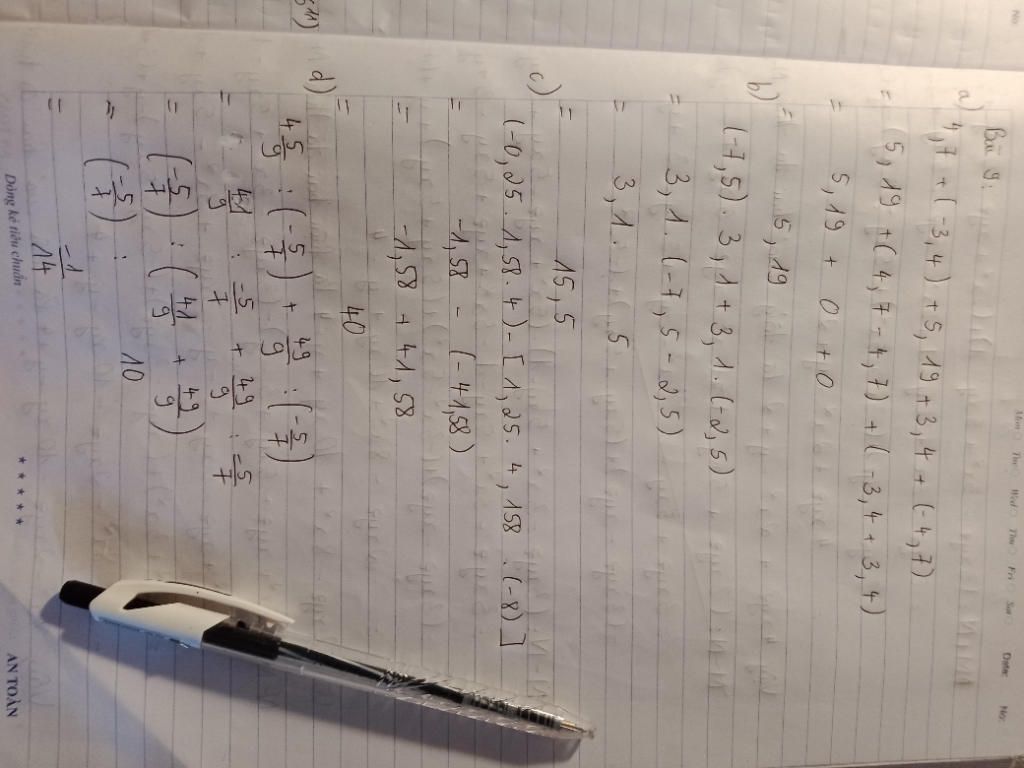 Date: No:
Bài 9:
a) 4,7 + (-3,4) + 5,19 + 3,4 + (-4,7)
= 5,19 + (4,7 - 4,7) + (-3,4 + 3,4)
= 5,19 + 0 + 0
= 5,19
b) (-7,5) . 3,1 + 3,1 . (-2,5)
= 3,1 . (-7,5 - 2,5)
= 3,1 . 5
= 15,5
c) (-0,25 . 1,58 . 4) - [1,25 . 4,158 . (-8)]
= -1,58 - (-41,58)
= -1,58 + 41,58
= 40
d) 4 5/9 : (-5/7) + 49/9 : (-5/7)
= 41/9 : -5/7 + 49/9 : -5/7
= (-5/7) : (41/9 + 49/9)
= (-5/7) : 10
= -1/14
Dòng kẻ tiêu chuẩn ***** AN TOÀN